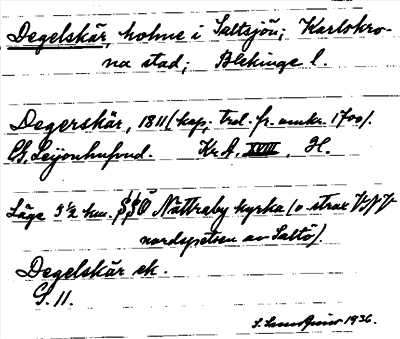 Degelskär, holme i Saltsjön; Karlskro-
na stad; Blekinge l.
Degerskär, 1811 (kop. trol. fr. omkr. 1700).
CG. Leijonhufvud. Kr. A. XVIII. H.
Läge 3½ km. SSÖ Nättraby kyrka (o. strax NNV
nordspetsen av Saltö).
Degelskär ek.
G. 11.
1936.